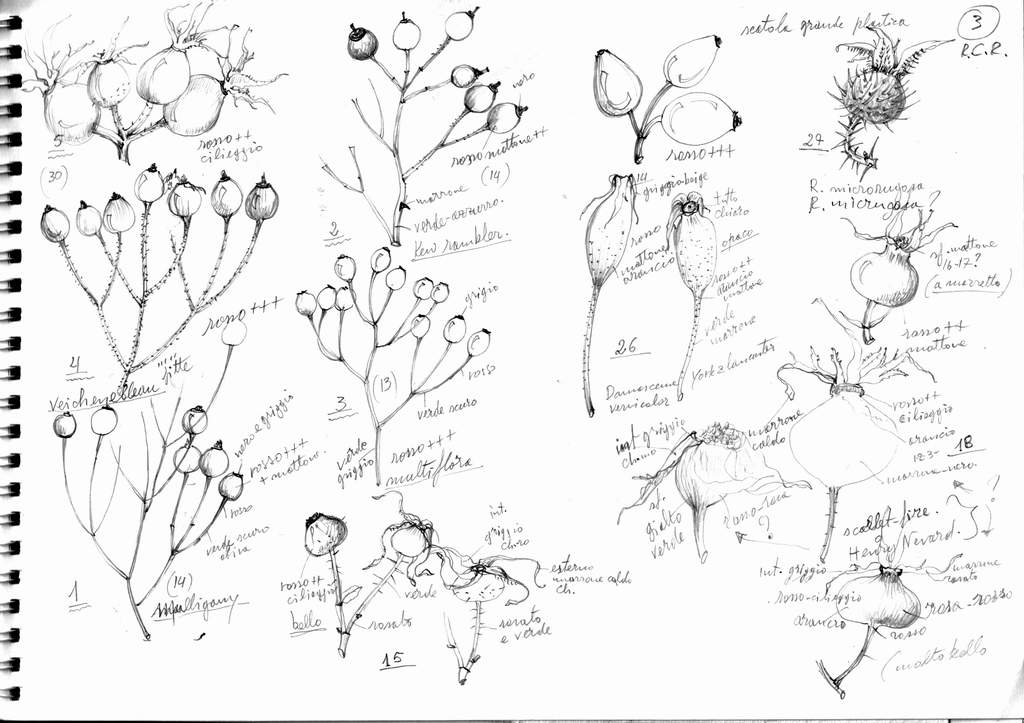 scatola grande plastica
3
R.C.R.
5
rosso++
ciliegio
(30)
4
rosso+++
fitte
1
nero e griggio
rosso++
+ mattone.
rosso
verde scuro
oliva
(14)
nero
rosso mattone++
(14)
marrone
verde-azzurro.
Kew rambler.
2
griggio
(13)
rosso
3
verde scuro
verde
griggio
rosso+++
multiflora
rosso++
ciliegio
bello
rosato
15
verde
int.
griggio
chiaro
esterno
marrone caldo
ch.
rosato
e verde
rosso+++
griggio-beige
tutto
chiaro
opaco
rosso
mattone
arancio
rosso++
arancio
mattone
verde
marrone
26
Damascena
versicolor
York & lancaster
27
R. microrugosa
R. microgosa?
mattone
16-17?
(a mazzetto)
rosso++
mattone.
int. griggio
chiaro
marrone
caldo
st.
giallo
verde
rosso-rosa
?
rosso++
ciliegio
arancio
18
marrone-nero.
scarlet-fire.
?
Henry Nevard.
int. griggio
marrone
rosato
rosso-ciliegio
arancio
rosa-rosso
rosso
(molto bello